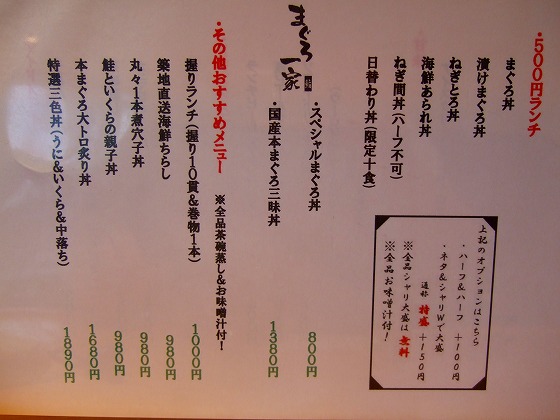 ・500円ランチ
まぐろ丼
漬けまぐろ丼
ねぎとろ丼
海鮮あられ丼
ねぎ間丼(ハーフ不可)
日替わり丼(限定十食)
上記のオプションはこちら
・ハーフ&ハーフ +100円
・ネタ&シャリWで大盛
通称 特盛 +150円
※全品シャリ大盛は無料
※全品お味噌汁付!
まぐろ一家
・スペシャルまぐろ丼 800円
・国産本まぐろ三昧丼 1380円
・その他おすすめメニュー
※全品茶碗蒸し&お味噌汁付!
握りランチ(握り10貫&巻物1本) 1000円
築地直送海鮮ちらし 980円
丸々1本煮穴子丼 980円
鮭といくらの親子丼 980円
本まぐろ大トロ炙り丼 1680円
特選三色丼(うに&いくら&中落ち) 1890円